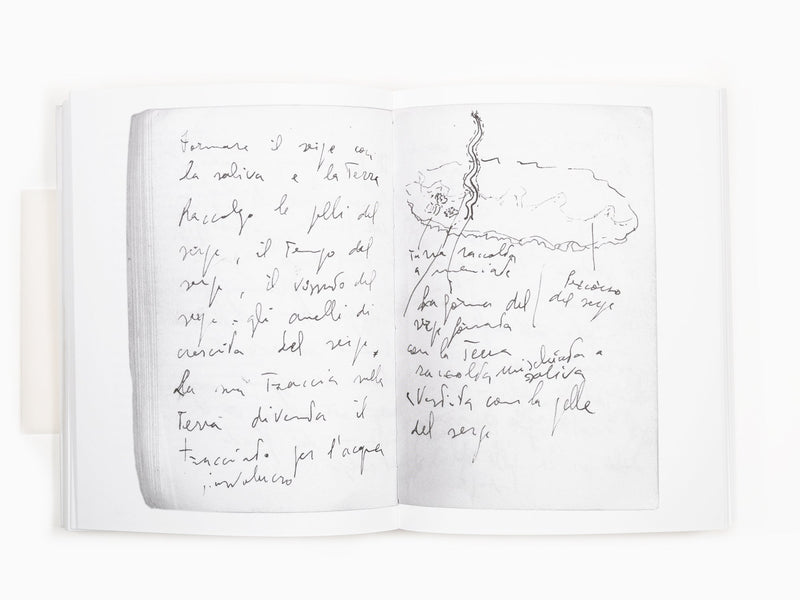 Formare il serpe con
la saliva e la Terra
Raccolgo le pelli del
serpe, il Tempo del
serpe, il vissuto del
serpe - gli anelli di
crescita del serpe,
La mia Traccia sulla
Terra diventa il
tracciato per l'acqua
involucro
Terra raccolta
a manciate
Percorso
del serpe
La forma del
serpe formata
con la Terra
raccolta mischiata a
saliva
Vestita con la pelle
del serpe